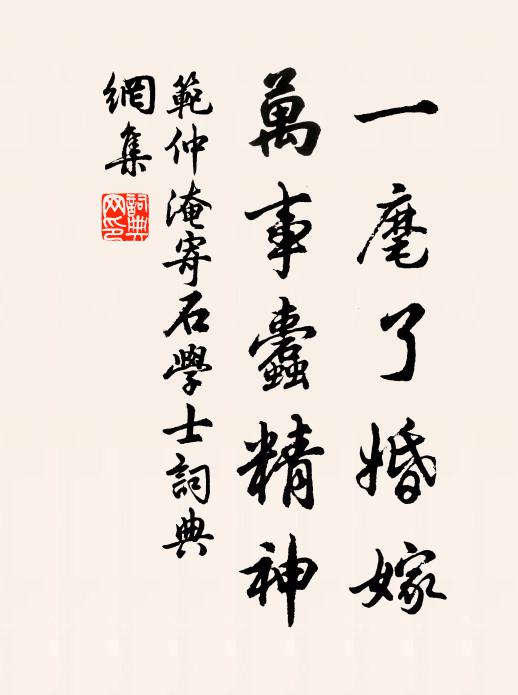 一麾了婚嫁
萬事蠹精神
範仲淹寄石學士詞典
網集
詞典
网印